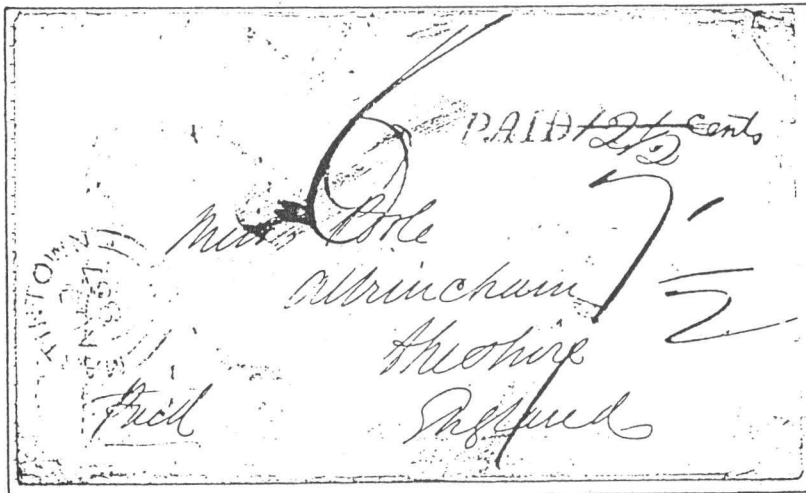 6
PAID 12½ Cents
7½
Miss Poole
Altrincham
Cheshire
England
Paid